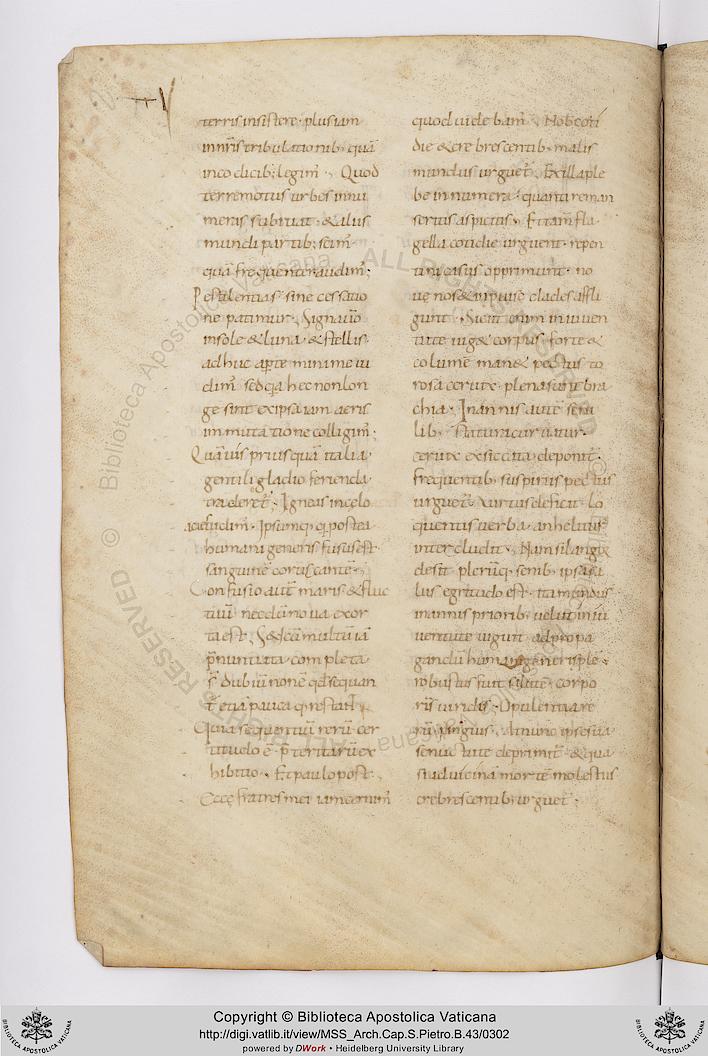 terris insistere · plus iam
in nr̄is tribulationib· quā
in codicib; legim̄ · Quod
terremotus urbes innu
meris subruat · & aliis
mundi partib; scim̄
quā frequenter audim̄;
Pestilentias sine cessatio
ne patimur · Signa uō
in sole & luna · & stellis
adhuc apte minime ui
dim̄ sed q̄a hec non lon
ge sint ex ipsa iam aeris
inmutatione colligim̄ ·
Quāuis priusquā italia
gentili gladio ferienda
traderet̄ · Igneas in celo
acies uidim̄ · Ipsumq; q postea
humani generis fusus est
sanguinē coruscantē ·
Confusio aut̄ maris & fluc
tuū necdū noua exor
ta est · Sed cū multa iā
p̄nuntiata completa
s̄ dubiū non ē qd sequan
t̄ etiā pauca q restant
Quia sequentiū rerū cer
titudo ē p̄teritarū ex
hibitio · Et paulo post ·
Ecce fratres mei iam cernim̄
quod uidebam̄ · Nobis coti
die & crebrescentib· malis
mundus urguet̄ · Ex illa ple
be innumera · quanti reman
seritis aspicitis · Et tam̄ fla
gella cotidie urguent · repen
tini casus opprimunt · no
uę nos & inpuisę clades affli
gunt · Sicut enim in iuuen
tute uig& corpus · forte &
columē man& pectus · to
rosa ceruix · plena sunt bra
chia · In annis autē seni
lib· statura curuatur ·
ceruix exsiccata deponit̄ ·
frequentib· suspiriis pectus
urguet̄ · Virtus deficit · lo
quentis uerba anhelitus
intercludit · Nam si langor
desit plerūq· senib· ipsa sa
lus egritudo est · ita mundus
in annis priorib· uelut in iu
uentute uiguit ad propa
gandū humani generis plē ·
robustus fuit salute corpo
rū uiridis · Opulentia re
rū pinguis · At nunc ipse sua
senectute deprimit̄ · & qua
si ad uicinā mortē molestiis
crebrescentib· urguet̄ ·
Copyright © Biblioteca Apostolica Vaticana
http://digi.vatlib.it/view/MSS_Arch.Cap.S.Pietro.B.43/0302
powered by DWork • Heidelberg University Library